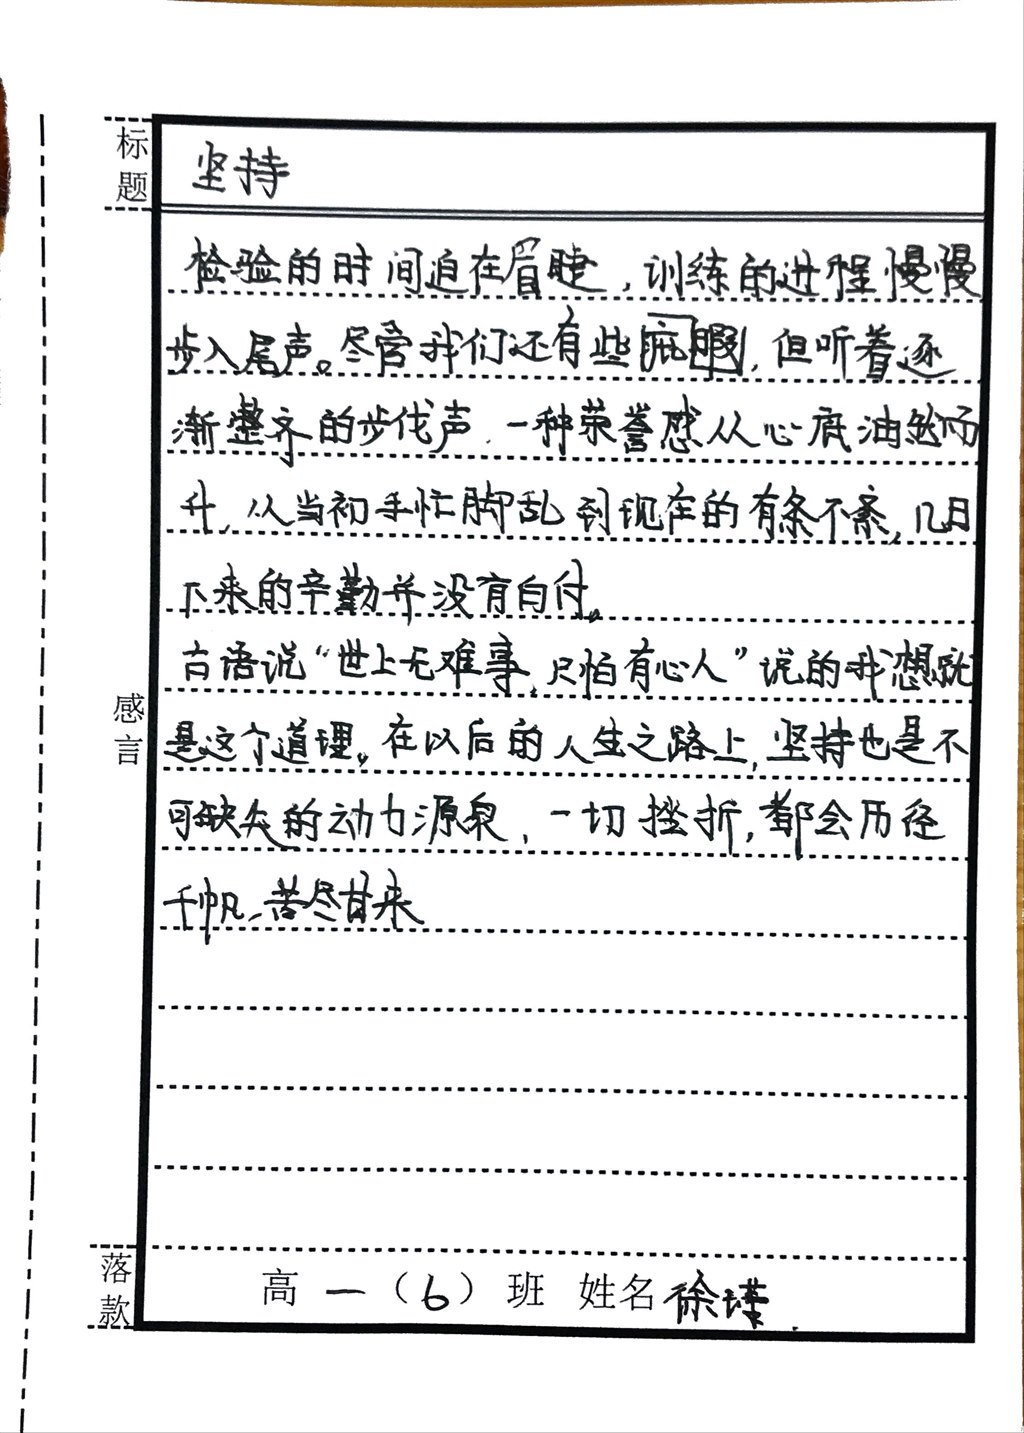 标题
坚持
检验的时间迫在眉睫，训练的进程慢慢
步入尾声。尽管我们还有些疵瑕，但听着逐
渐整齐的步伐声，一种荣誉感从心底油然而
升，从当初手忙脚乱到现在的有条不紊，几日
下来的辛勤并没有白付。
古语说“世上无难事，只怕有心人”说的我想就
是这个道理。在以后的人生之路上，坚持也是不
可缺失的动力源泉，一切挫折，都会历经
千帆、苦尽甘来
感言
落款
高一（6）班 姓名 徐瑾